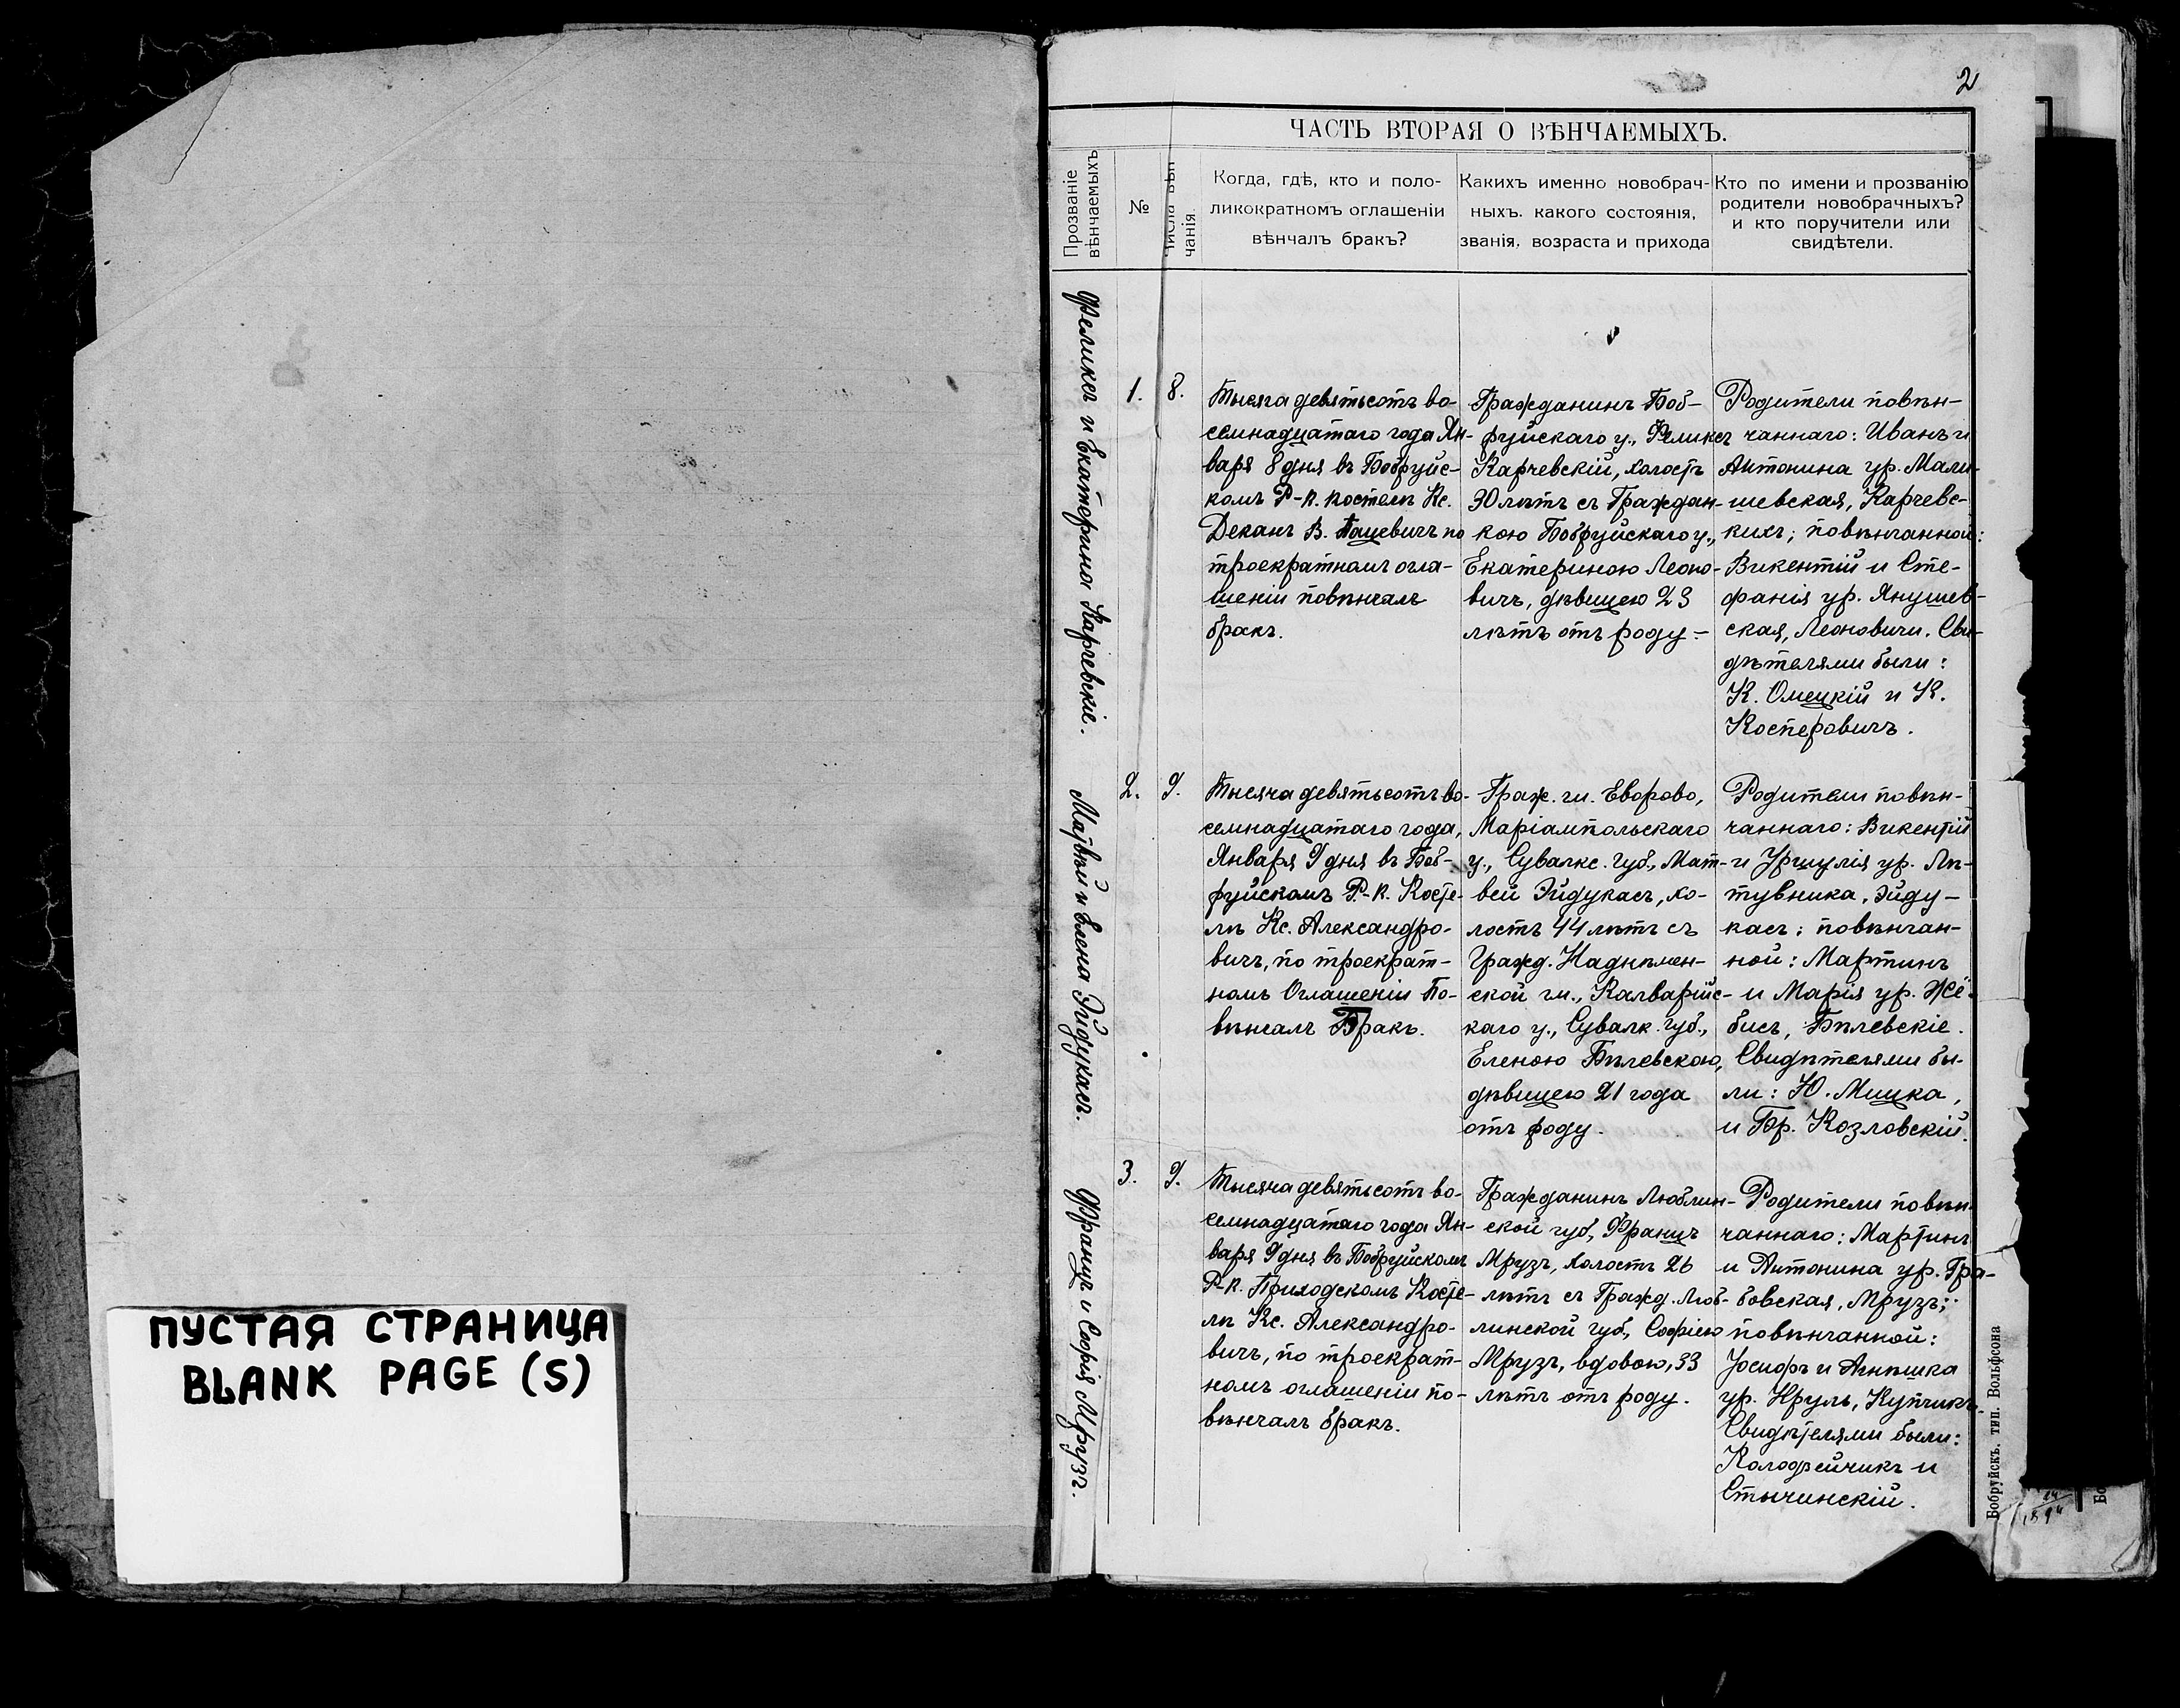 2
ЧАСТЬ ВТОРАЯ О ВѢНЧАЕМЫХЪ.
Прозваніе
вѣнчаемыхъ
№
Числа вѣн
чанія
Когда, гдѣ, кто и поло-
ликократномъ оглашеніи
вѣнчалъ бракъ?
Какихъ именно новобрач-
ныхъ. какого состоянія,
званія, возраста и прихода
Кто по имени и прозванію
родители новобрачныхъ?
и кто поручители или
свидѣтели.
Феликсъ и Екатерина Карчевскіе.
1.
8.
Тысяча девятьсотъ во-
семнадцатаго года Ян-
варя 8 дня въ Бобруйс-
комъ Р-к. костелѣ Кс.
Деканъ В. по
троекратномъ огла-
шеніи повѣнчалъ
бракъ.
Гражданинъ Боб-
руйскаго у., Феликсъ
Карчевскій, холостъ
30 лѣтъ съ Граждан-
кою Бобруйскаго у.,
Екатериною Леоно-
вичъ, дѣвицею 23
лѣтъ отъ роду –
Родители повѣн-
чаннаго: Иванъ и
Антонина ур. Мали-
шевская, Карчевс-
кихъ; повѣнчанной:
Викентій и Сте-
фанія ур. Янушев-
ская, Леоновичи. Сви-
дѣтелями были:
К. Омецкій и К.
Косперовичъ.
Матвѣй и Елена Эйдукасъ.
2.
9.
Тысяча девятьсотъ во-
семнадцатаго года,
Января 9 дня въ Боб-
руйскомъ Р-к. Косте-
лѣ Кс. Александро-
вичъ, по троекрат-
номъ Оглашеніи По-
вѣнчалъ Бракъ.
Граж. гм. Еворово,
Маріампольскаго
у., Сувалкс. губ., Мат-
вей Эйдукасъ, хо-
лостъ 44 лѣтъ съ
Гражд. Наднѣмен-
ской гм., Калварійс-
каго у., Сувалк. губ.,
Еленою Бѣлевскою,
дѣвицею 21 года
отъ роду.
Родители повѣн-
чаннаго: Викентій
и Уршулія ур. Лѣ-
тувника, Эйду-
касъ; повѣнчан-
ной: Мартинъ
и Марія ур. Жё-
бисъ, Бѣлевскіе.
Свидѣтелями бы-
ли: Ю. Мицка,
и Бр. Козловскій.
Францъ и Софія Мрузъ.
3.
9.
Тысяча девятьсотъ во-
семнадцатаго года Ян-
варя 9 дня въ Бобруйскомъ
Р-к. Приходскомъ Косте-
лѣ Кс. Александро-
вичъ, по троекрат-
номъ оглашеніи по-
вѣнчалъ бракъ.
Гражданинъ Люблин-
ской губ., Францъ
Мрузъ, холостъ 26
лѣтъ съ Гражд. Люб-
линской губ., Софіею
Мрузъ, вдовою, 33
лѣтъ отъ роду.
Родители повѣн-
чаннаго: Мартинъ
и Антонина ур. Гра-
бовская, Мрузъ;
повѣнчанной:
Іосифъ и Агнѣшка
ур. Круль, Купчикъ.
Свидѣтелями были:
Колодзейчикъ и
Стычинскій.
Бобруйскъ. тип. Вольфсона
ПУСТАЯ СТРАНИЦА
BLANK PAGE (S)